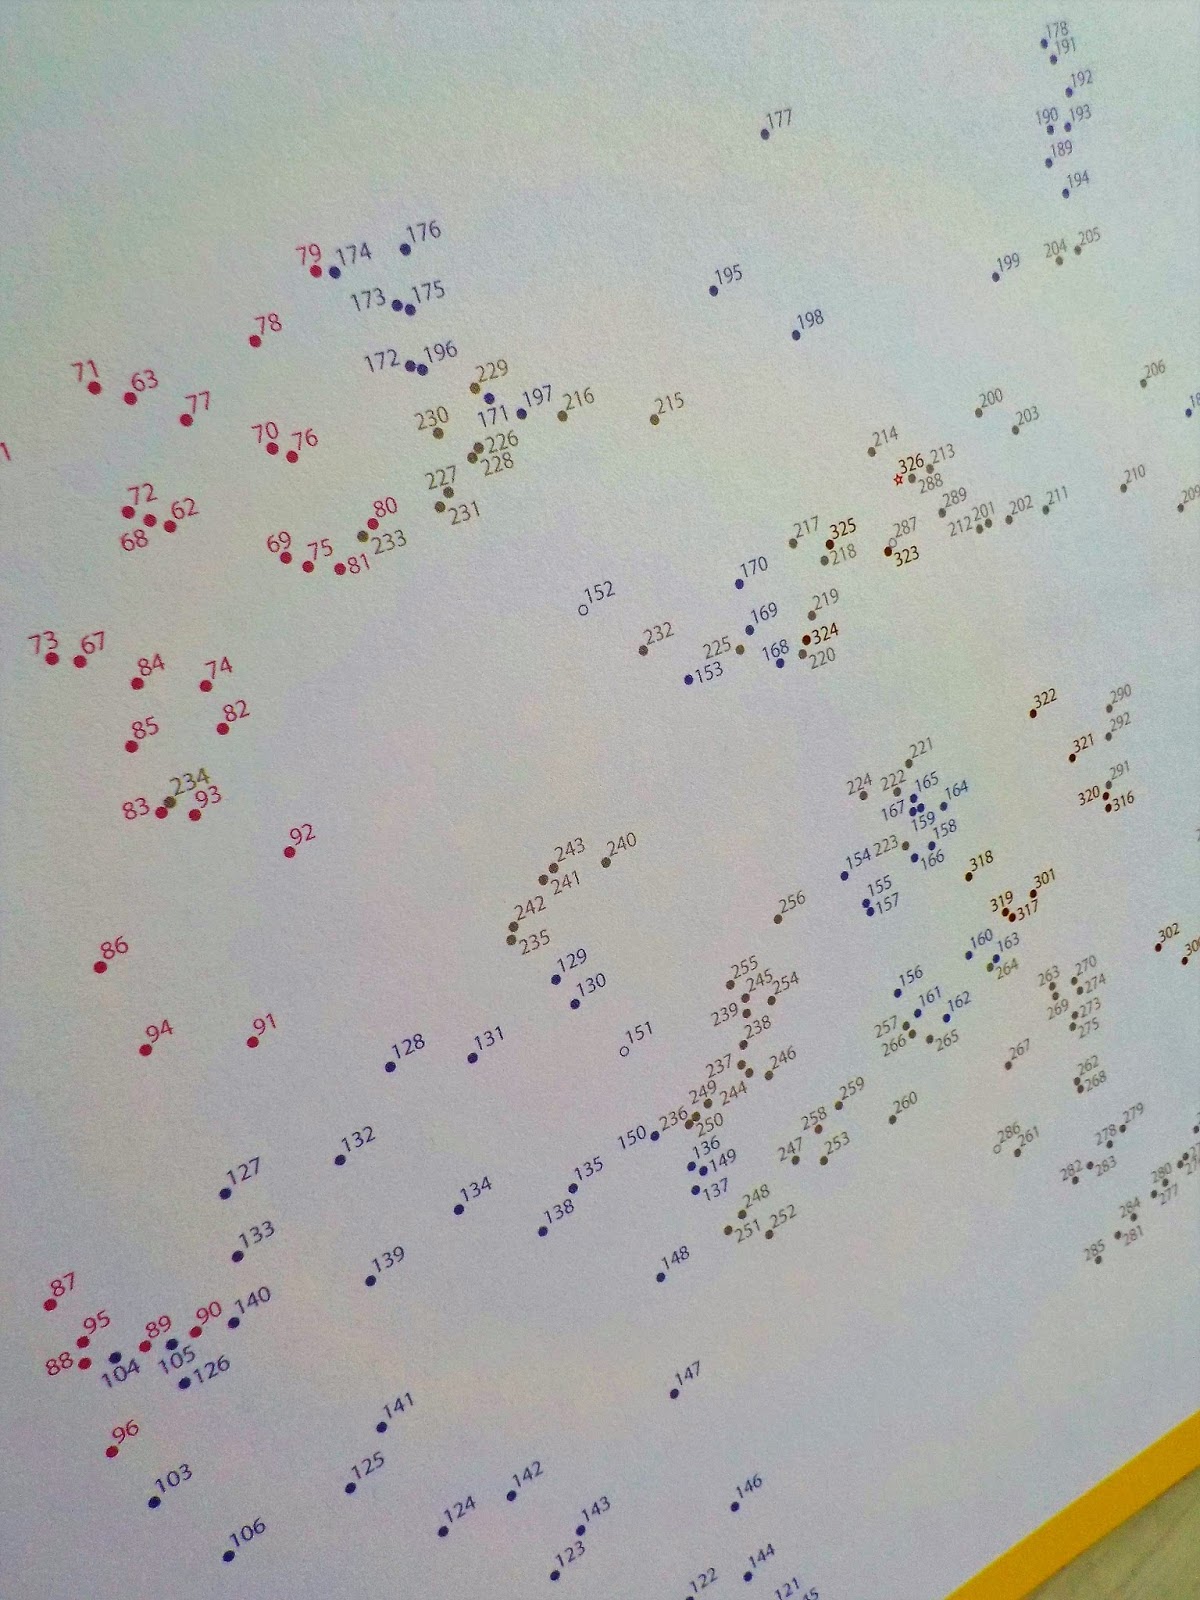 178
191
192
177
190 193
189
194
176
205
79 174
204
199
195
173 175
198
78
172 196
206
229
71 63
77
171 197 216
215
200
230
203
70 76
226
214
326 213
228
288
227
210
72
62
231
80
289
211
68
233
217 325
287
212 201 202
69 75 81
218
323
170
152
219
169
232
225
168
324
220
73 67
153
84 74
322
290
82
292
85
321
221
291
234
224 222 165
164
320
316
83 93
167
159
158
92
243
240
223
154
166
241
318
155
301
157
319
317
242
256
235
302
160 163
86
264
129
255
270
156
263
274
130
245 254
161
162
269
273
239
257
275
94 91
151
238
266
265
128 131
267
237
246
262
268
249
244
259
236
260
250
258
286
279
150
261
278
132
136
253
149
247
283
282
127
135
280
137
277
134
248
284
138
251 252
281
133
285
148
139
87
95
89 90 140
88
104 105
126
147
96
141
103
125
142
146
124
143
106
123
144
122
121